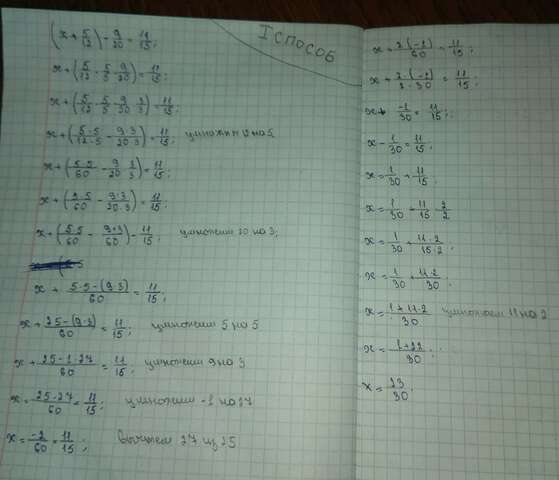 I СПОСОБ
(x + 5/12) - 9/20 = 11/15;
x + (5/12 · 5/5 - 9/20) = 11/15;
x + (5/12 · 5/5 - 9/20 · 3/3) = 11/15;
x + (5·5/12·5 - 9·3/20·3) = 11/15; умножим 12 на 5
x + (5·5/60 - 9/20 · 3/3) = 11/15;
x + (5·5/60 - 9·3/20·3) = 11/15;
x + (5·5/60 - 9·3/60) = 11/15; умножим 20 на 3;
x + 5·5-(9·3)/60 = 11/15;
x + 25-(9·3)/60 = 11/15; умножим 5 на 5
x + 25-1·27/60 = 11/15; умножим 9 на 3
x = 25-27/60 = 11/15; умножим -1 на 27
x = -2/60 = 11/15; Вычтем 27 из 25
x + 2(-1)/60 = 11/15
x + 2·(-1)/2·30 = 11/15;
x + -1/30 = 11/15;
x - 1/30 = 11/15;
x = 1/30 + 11/15;
x = 1/30 + 11/15 · 2/2
x = 1/30 + 11·2/15·2;
x = 1/30 + 11·2/30;
x = 1+11·2/30 умножаем 11 на 2
x = 1+22/30;
x = 23/30.